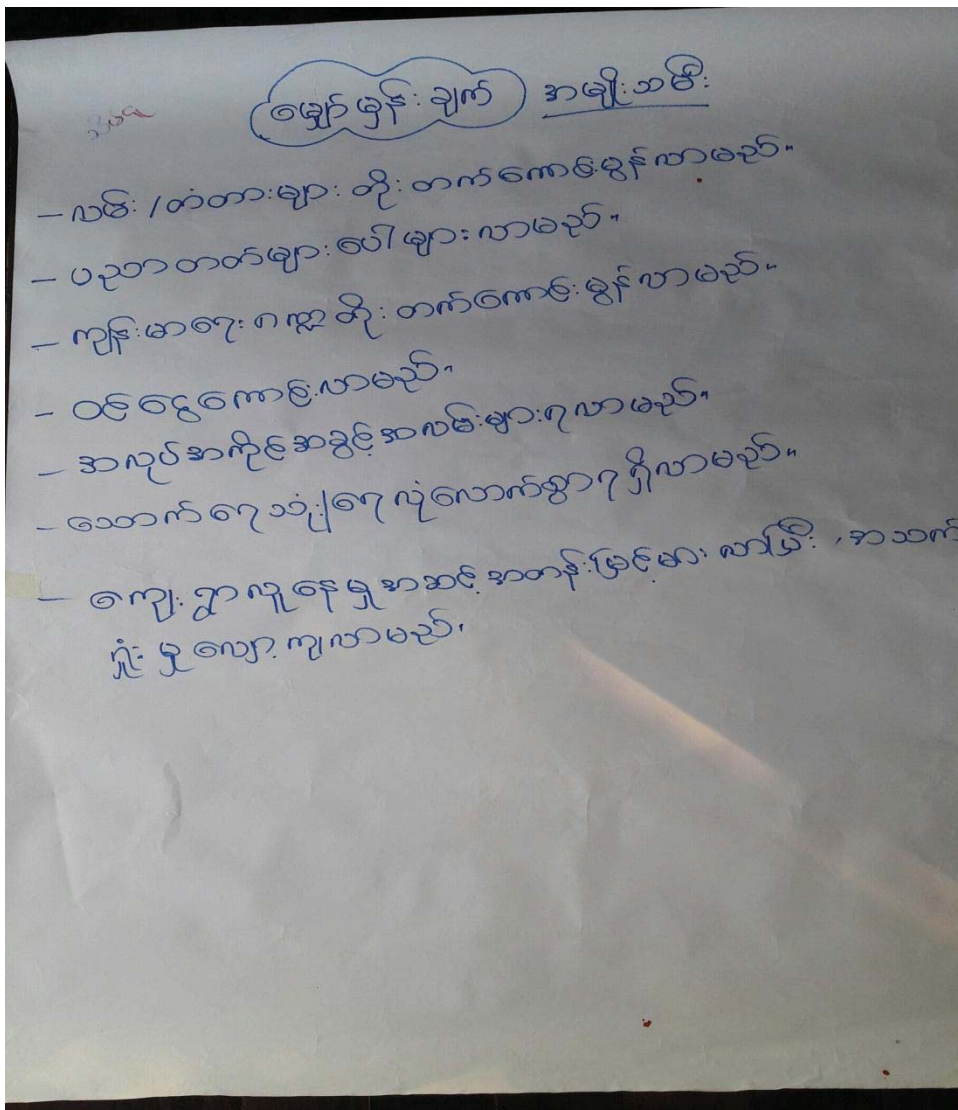 မျှော်မှန်းချက် အမျိုးသမီး
- လမ်း/တံတားများ တိုးတက်ကောင်းမွန်လာမည်။
- ပညာတတ်များ ပေါများလာမည်။
- ကျန်းမာရေးကဏ္ဍ တိုးတက်ကောင်းမွန်လာမည်။
- ဝင်ငွေကောင်းလာမည်။
- အလုပ်အကိုင်အခွင့်အလမ်းများရလာမည်။
- သောက်ရေသုံး/ရေလုံလောက်စွာရရှိလာမည်။
- ကျေးရွာလူနေမှုအဆင့်အတန်းမြင့်မားလာပြီး ၊ အသက်
ရှုံးမှုလျော့ကျလာမည်။